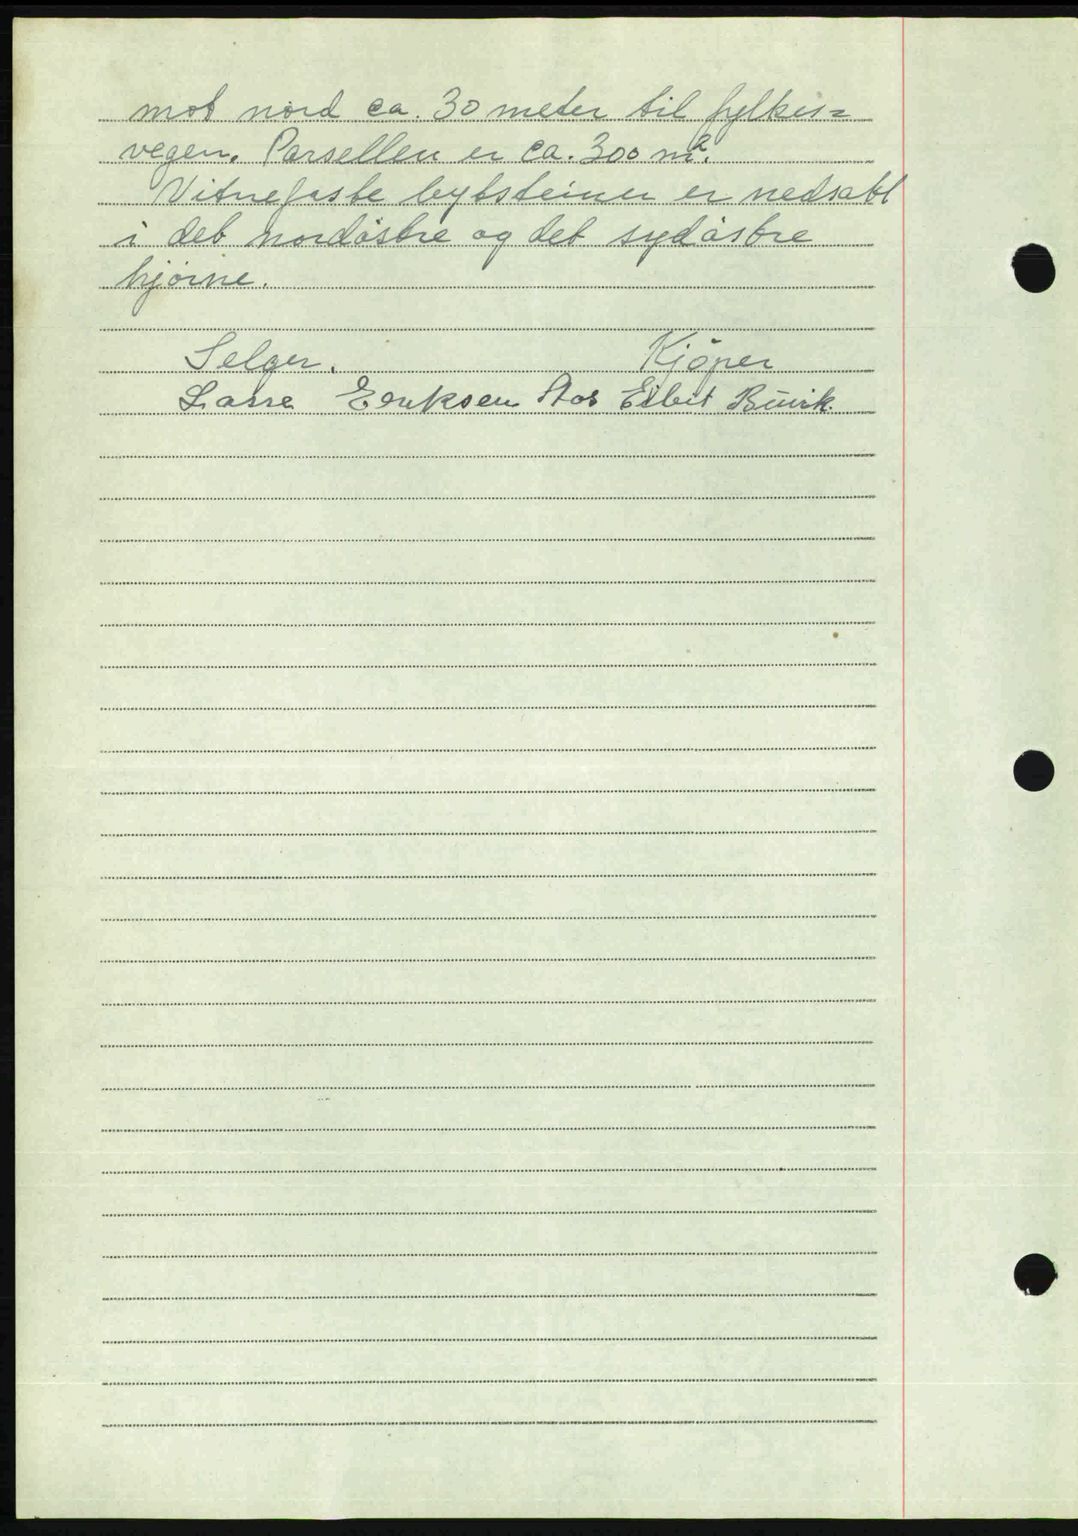 mot nord ca. 30 meter til fylkes=
vegen. Parsellen er ca. 300 m².
Vitnefaste bytsteiner er nedsatt
i det nordöstre og det sydöstre
hjörne.
Selger. Kjöper
Lasse Eriksen Mos Eilert Buvik.